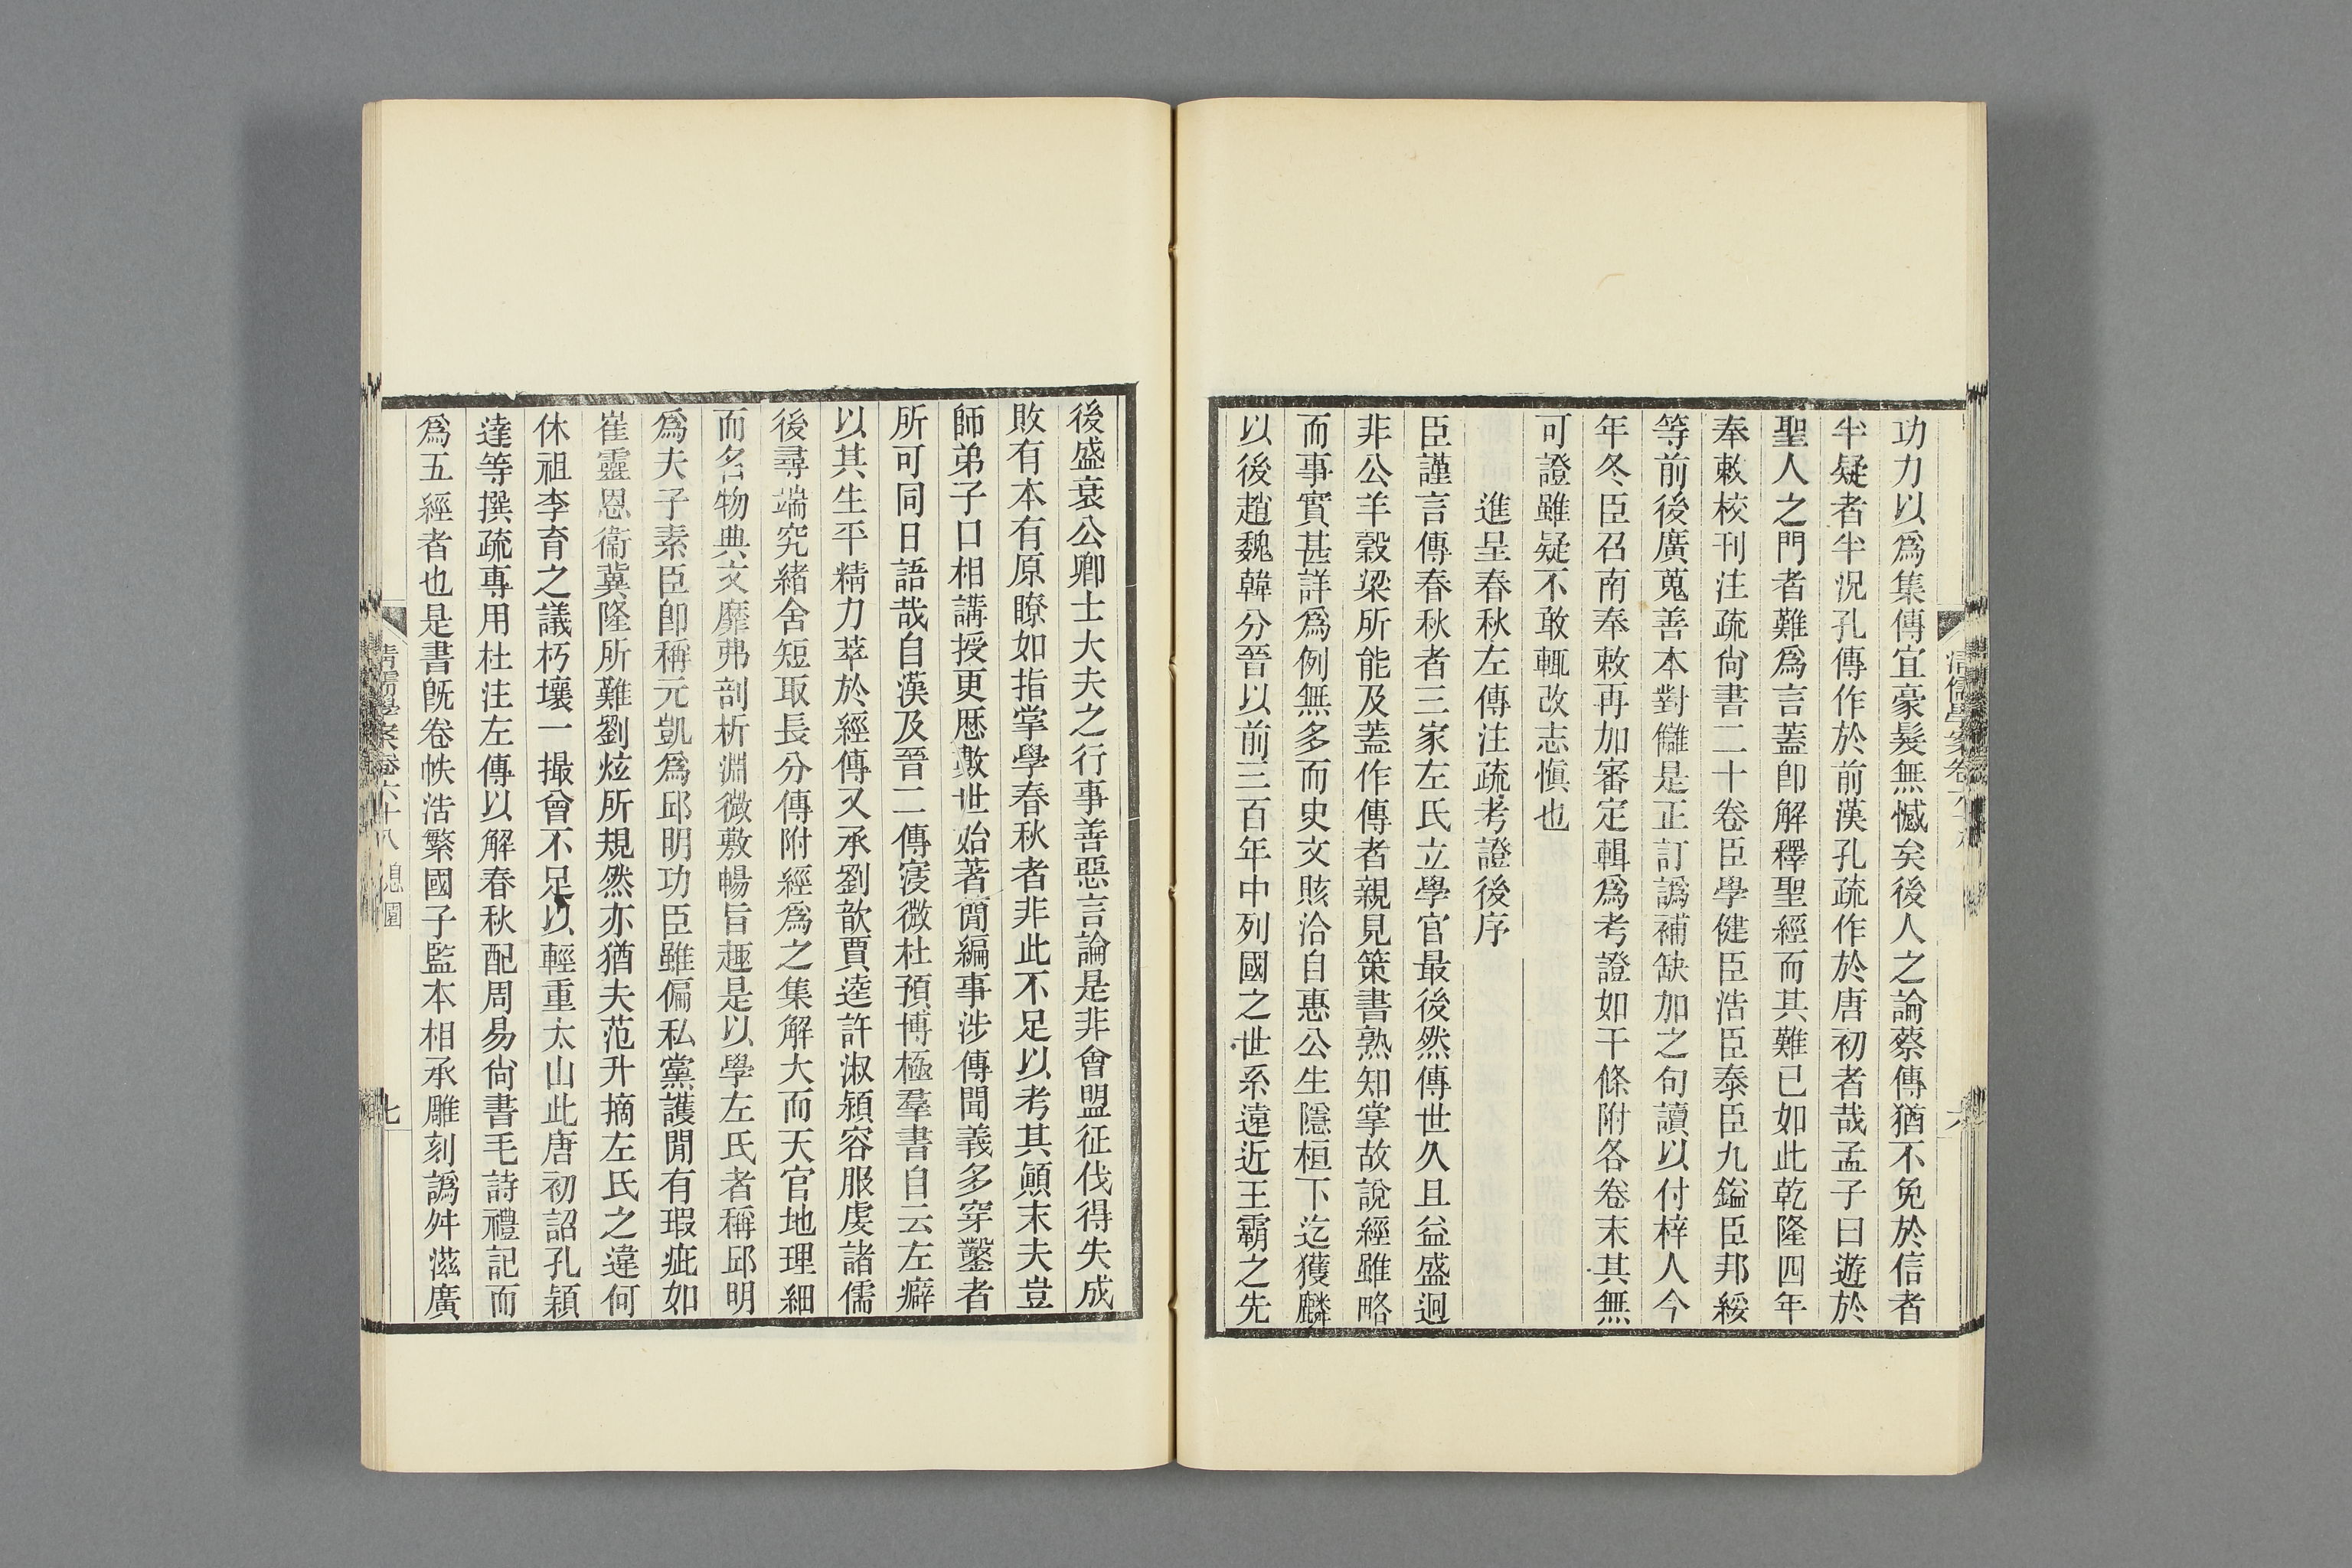 功力以爲集傳宜豪髮無憾矣後人之論蔡傳猶不免於信者
半疑者半況孔傳作於前漢孔疏作於唐初者哉孟子曰遊於
聖人之門者難爲言蓋卽解釋聖經而其難已如此乾隆四年
奉敕校刊注疏尙書二十卷臣學健臣浩臣泰臣九鎰臣邦綏
等前後廣蒐善本對讎是正訂譌補缺加之句讀以付梓人今
年冬臣召南奉敕再加審定輯爲考證如干條附各卷末其無
可證雖疑不敢輒改志愼也
進呈春秋左傳注疏考證後序
臣謹言傳春秋者三家左氏立學官最後然傳世久且益盛迥
非公羊穀梁所能及蓋作傳者親見策書熟知掌故說經雖略
而事實甚詳爲例無多而史文賅洽自惠公生隱桓下迄獲麟
以後趙魏韓分晉以前三百年中列國之世系遠近王霸之先
後盛衰公卿士大夫之行事善惡言論是非會盟征伐得失成
敗有本有原瞭如指掌學春秋者非此不足以考其顚末夫豈
師弟子口相講授更歷數世始著簡編事涉傳聞義多穿鑿者
所可同日語哉自漢及晉二傳寖微杜預博極羣書自云左癖
以其生平精力萃於經傳又承劉歆賈逵許淑潁容服虔諸儒
後尋端究緒舍短取長分傳附經爲之集解大而天官地理細
而名物典文靡弗剖析淵微敷暢旨趣是以學左氏者稱邱明
爲夫子素臣卽稱元凱爲邱明功臣雖偏私黨護閒有瑕疵如
崔靈恩衞冀隆所難劉炫所規然亦猶夫范升摘左氏之違何
休祖李育之議朽壤一撮曾不足以輕重太山此唐初詔孔穎
達等撰疏專用杜注左傳以解春秋配周易尙書毛詩禮記而
爲五經者也是書旣卷帙浩繁國子監本相承雕刻譌舛滋廣
清儒學案卷六十八
七